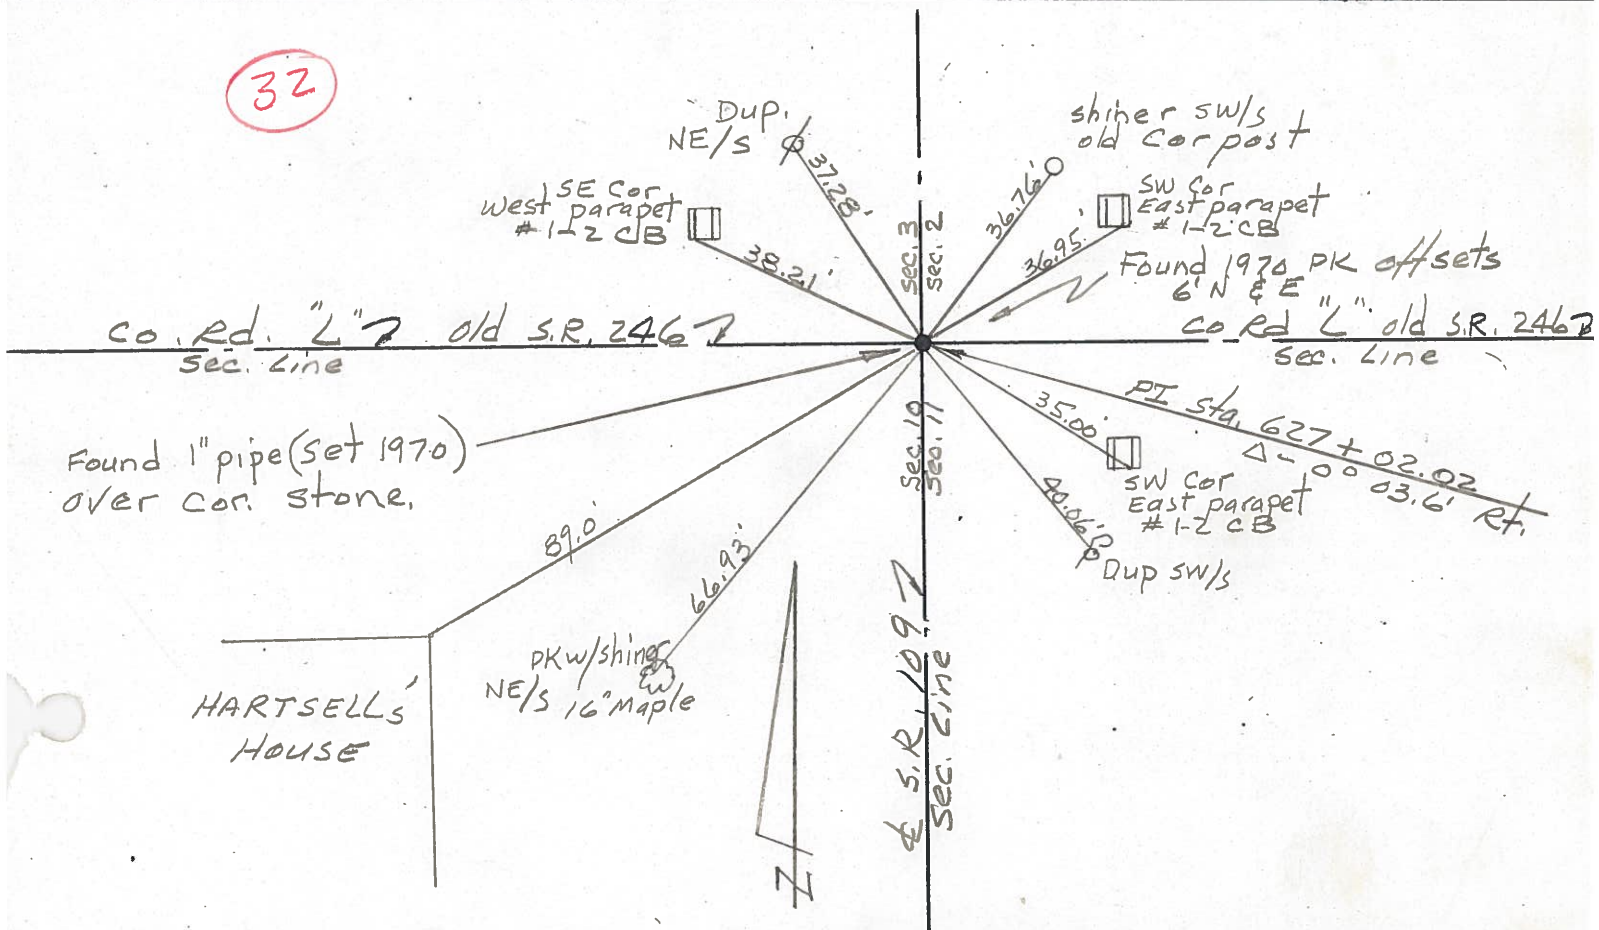 32
Dup.
NE/s
37.28'
shiner SW/s
old Cor post
36.76'
SE Cor
West parapet
# 1-2 CB
38.21'
SW Cor
East parapet
# 1-2 CB
36.95'
Sec. 3
Sec. 2
Found 1970 PK offsets
6' N & E
Co. Rd. "L" old S.R. 246
Sec. Line
Co Rd "L" old S.R. 246
Sec. Line
Found 1" pipe (set 1970)
over cor. stone.
PI Sta. 627 + 02.02
Δ - 0° 03.6' Rt.
35.00'
SW Cor
East parapet
# 1-2 CB
40.06'
Dup SW/s
Sec. 10
Sec. 11
89.0'
66.93'
PK w/shiner
NE/s 16" Maple
HARTSELL's
HOUSE
℄ S.R. 109
Sec. Line
N